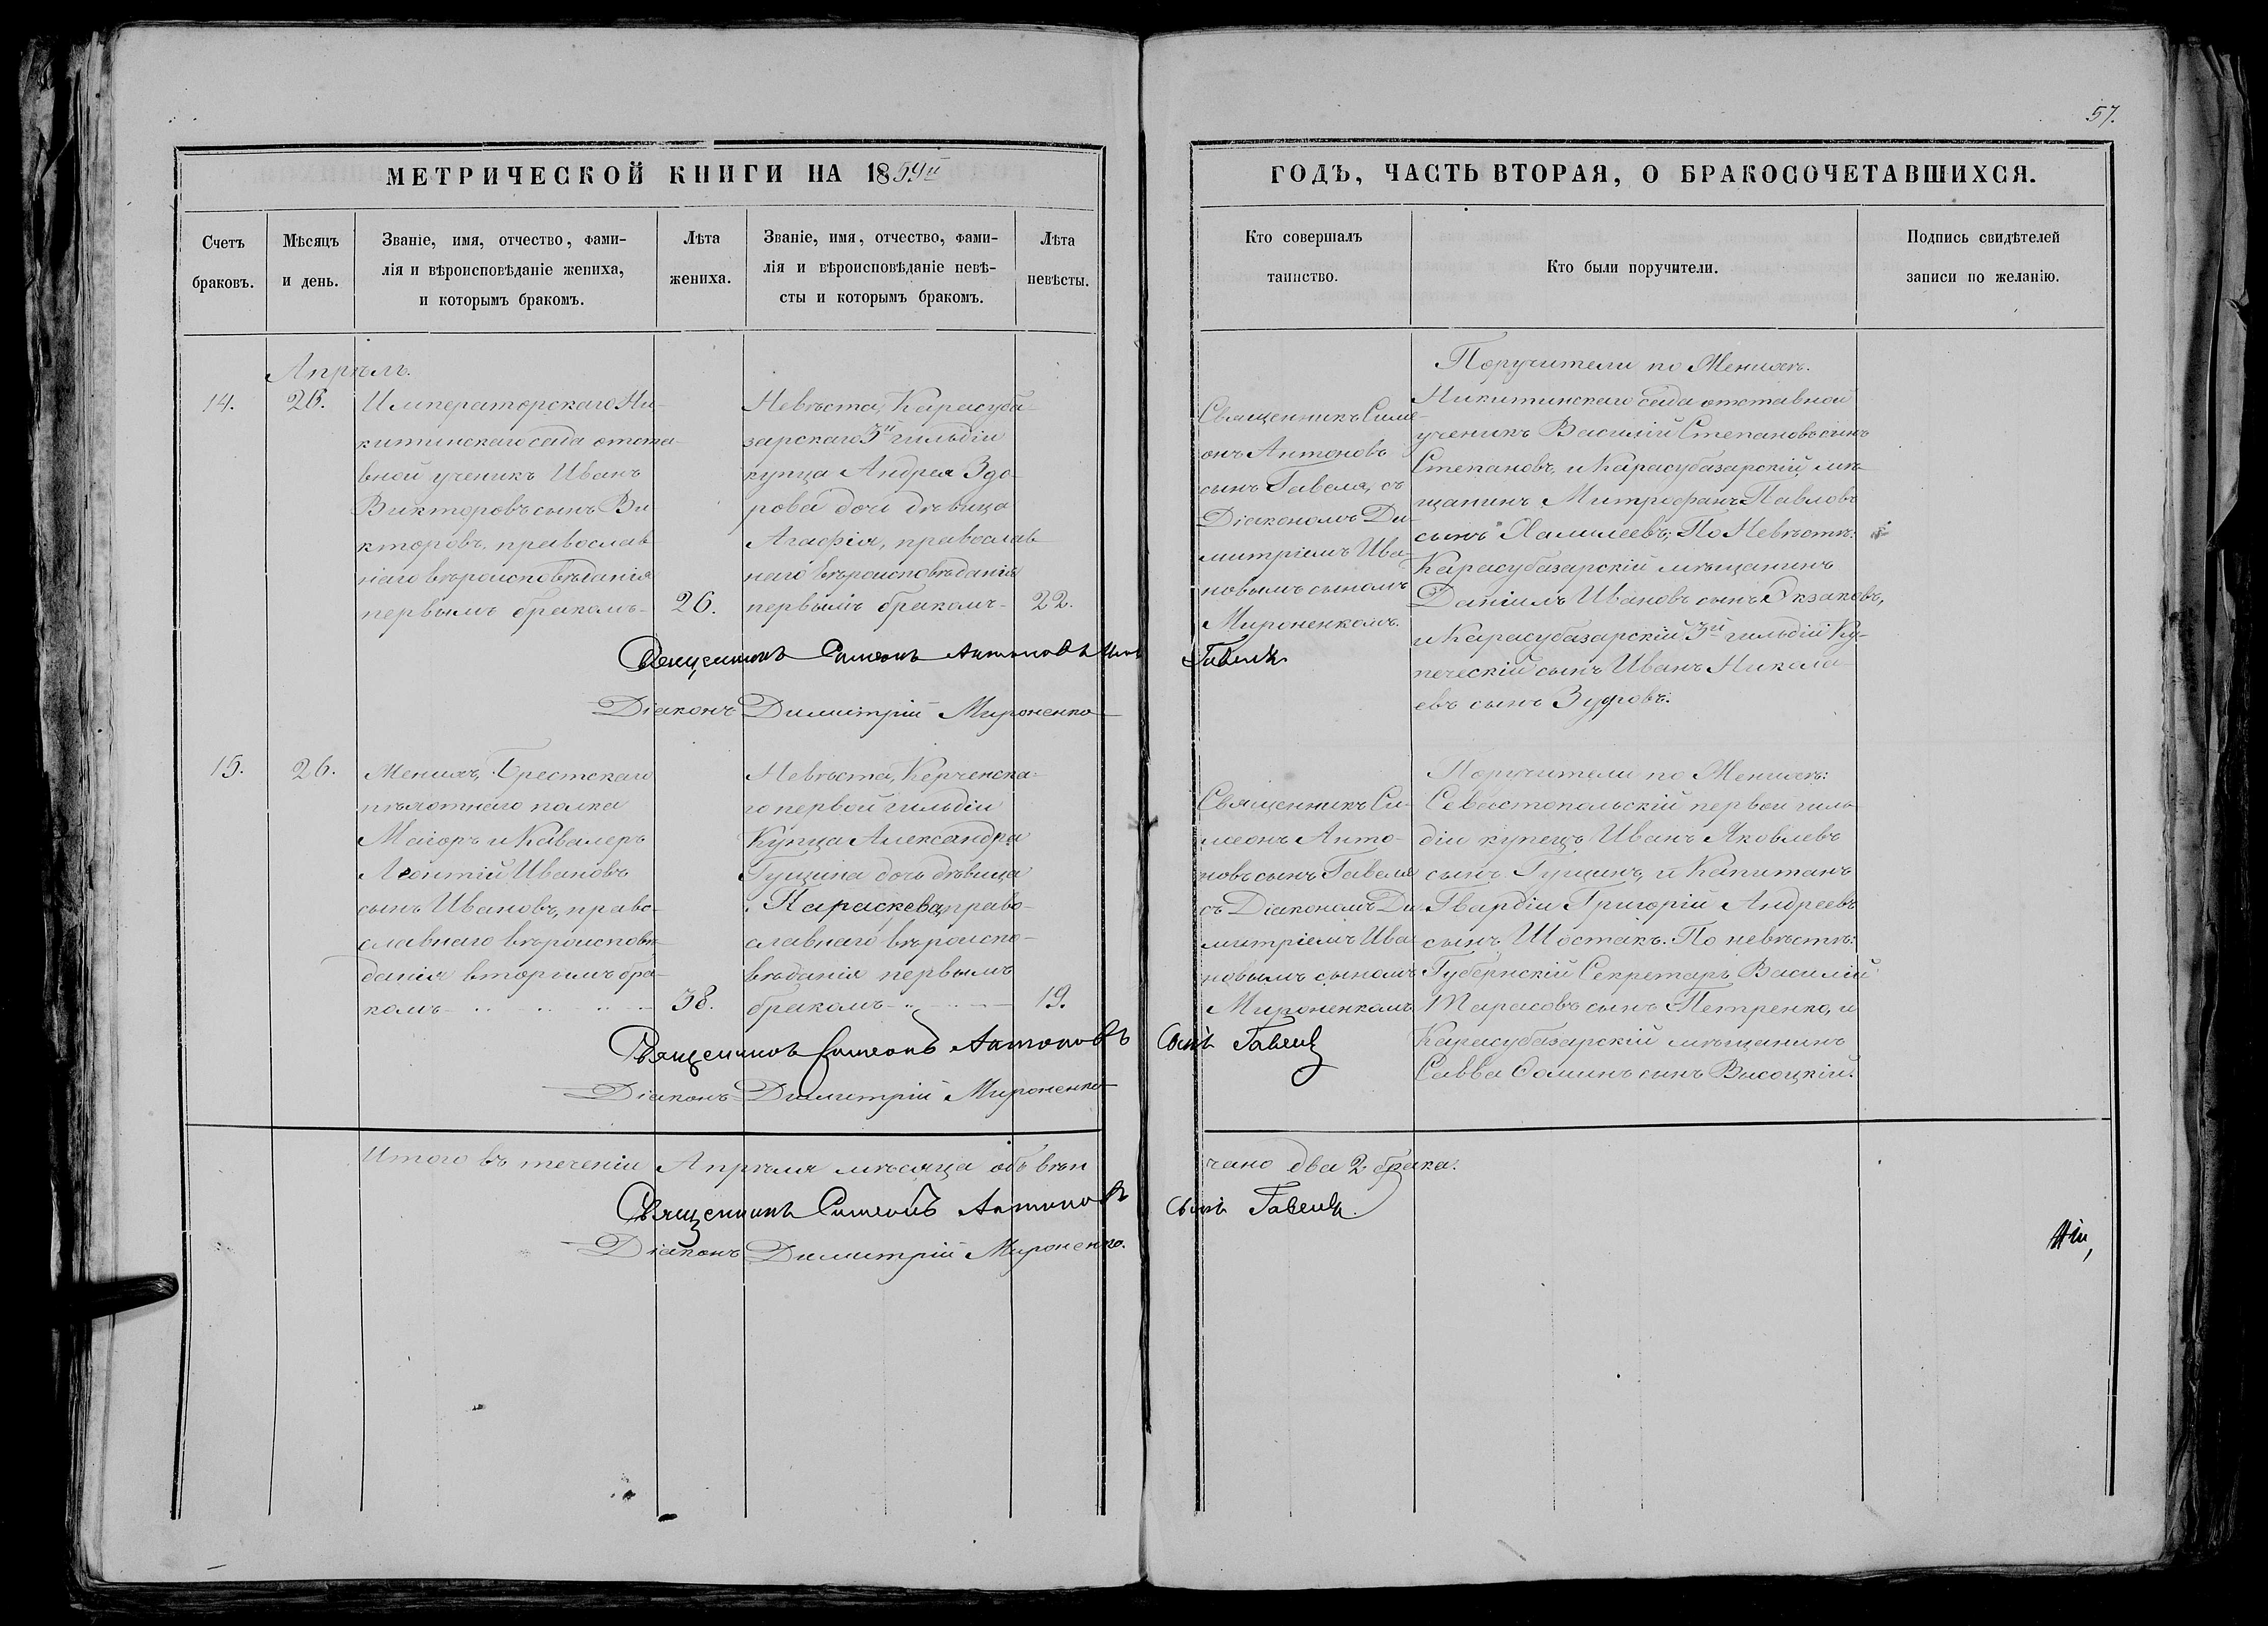 57.
МЕТРИЧЕСКОЙ КНИГИ НА 1859й
ГОДЪ, ЧАСТЬ ВТОРАЯ, О БРАКОСОЧЕТАВШИХСЯ.
Счетъ
браковъ.
Мѣсяцъ
и день.
Званіе, имя, отчество, фами-
лія и вѣроисповѣданіе жениха,
и которымъ бракомъ.
Лѣта
жениха.
Званіе, имя, отчество, фами-
лія и вѣроисповѣданіе невѣ-
сты и которымъ бракомъ.
Лѣта
невѣсты.
Кто совершалъ
таинство.
Кто были поручители.
Подпись свидѣтелей
записи по желанію.
Апрѣль.
14.
26.
Императорскаго Ни-
китинскаго сада отста-
вной ученикъ Иванъ
Викторовъ сынъ Ви-
кторовъ, православ-
наго вѣроисповѣданія
первымъ бракомъ-
26.
Невѣста, Карасуба-
зарскаго 3й гильдіи
купца Андрея Здо-
рова дочь дѣвица
Агафія, православ-
наго вѣроисповѣданія
первымъ бракомъ-
22.
Священникъ Симе-
онъ Антоновъ
сынъ Гавеля, съ
Діакономъ Ди-
митріемъ Ива-
новымъ сыномъ
Мироненкомъ.
Поручители по Женихѣ.
Никитинскаго сада отставной
ученикъ Василій Степановъ сынъ
Степановъ, и Карасубазарскій мѣ-
щанинъ Митрофанъ Павловъ
сынъ По Невѣстѣ:
Карасубазарскій мѣщанинъ
Даніилъ Ивановъ сынъ
и Карасубазарскій 3й гильдіи Ку-
печескій сынъ Иванъ Никола-
евъ сынъ
Священникъ Симеонъ Антоновъ сынъ Гавеля
Діаконъ Димитрій Мироненко
15.
26.
Женихъ, Брестскаго
пѣхотнаго полка
Маіоръ и Кавалеръ
Леонтій Ивановъ
сынъ Ивановъ, право-
славнаго вѣроисповѣ-
данія вторымъ бра-
комъ
38.
Невѣста, Керченска-
го первой гильдіи
Купца Александра
Гущина дочь дѣвица
Параскева, право-
славнаго вѣроиспо-
вѣданія первымъ
бракомъ
19.
Священникъ Си-
меонъ Анто-
новъ сынъ Гавеля
съ Діакономъ Ди-
митріемъ Ива-
новымъ сыномъ
Мироненкомъ
Поручители по Женихѣ:
Севастопольскій первой гиль-
діи купецъ Иванъ Яковлевъ
сынъ Гущинъ, и Капитанъ
Гвардіи Григорій Андреевъ
сынъ Шостакъ. По невѣстѣ:
Губернскій Секретарь Василій
Тарасовъ сынъ Петренко, и
Карасубазарскій мѣщанинъ
Савва Ѳоминъ сынъ Высоцкій.
Священникъ Симеонъ Антоновъ сынъ Гавеля
Діаконъ Димитрій Мироненко
Итого въ теченіи Апрѣля мѣсяца обвѣн
чано два 2 брака.
Священникъ Симеонъ Антоновъ сынъ Гавеля.
Діаконъ Димитрій Мироненко.